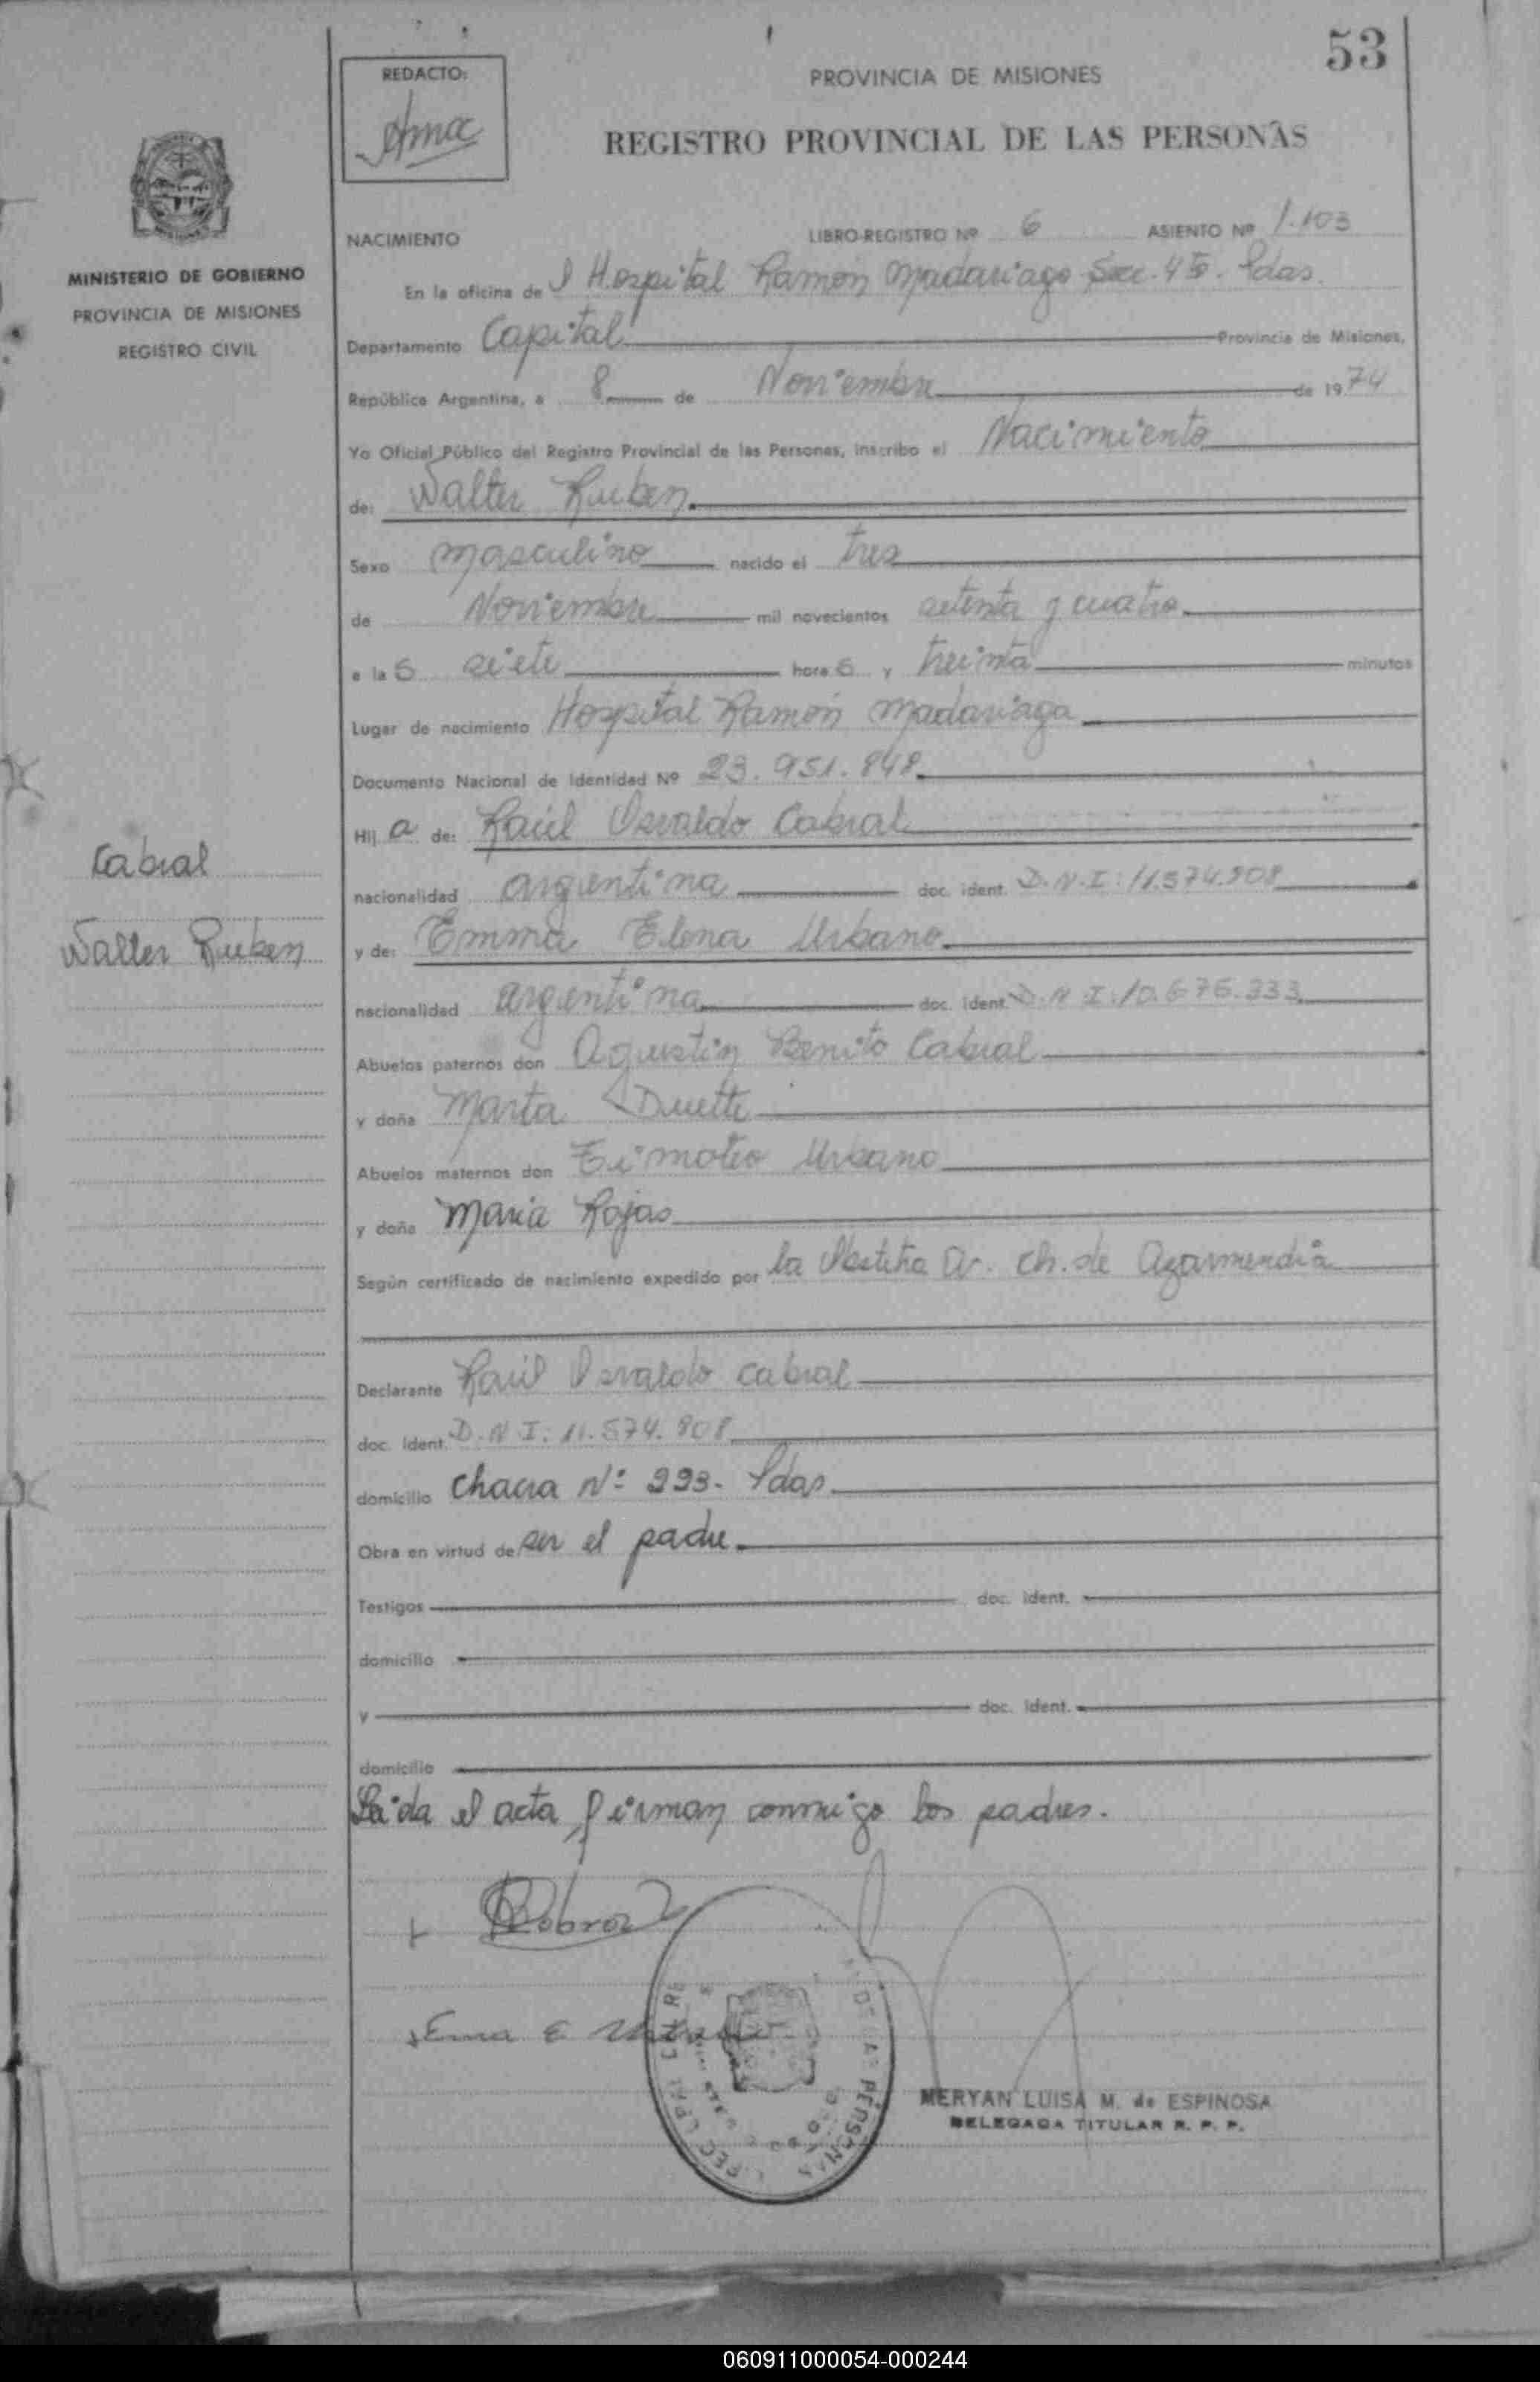 53
REDACTO:
Ama
PROVINCIA DE MISIONES
REGISTRO PROVINCIAL DE LAS PERSONAS
MINISTERIO DE GOBIERNO
PROVINCIA DE MISIONES
REGISTRO CIVIL
NACIMIENTO LIBRO-REGISTRO Nº 6 ASIENTO Nº 1.103
En la oficina de l Hospital Ramón Madariaga Secc. 4ta. Pdas.
Departamento Capital Provincia de Misiones,
República Argentina, a 8 de Noviembre de 1974
Yo Oficial Público del Registro Provincial de las Personas, inscribo el Nacimiento
de: Walter Ruben
Sexo masculino nacido el tres
de Noviembre mil novecientos setenta y cuatro
a las siete horas y treinta minutos
Lugar de nacimiento Hospital Ramón Madariaga
Documento Nacional de Identidad Nº 23.951.848
Hij o de: Raúl Osvaldo Cabral
nacionalidad argentina doc. ident. D.N.I: 11.574.908
Cabral
Walter Ruben
y de: Emma Elena Urbano
nacionalidad argentina doc. ident. D.N.I: 10.676.333
Abuelos paternos don Agustin Benito Cabral
y doña Marta Duette
Abuelos maternos don Timoteo Urbano
y doña Maria Rojas
Según certificado de nacimiento expedido por la Ch. de Azarmendia
Declarante Raúl Osvaldo Cabral
doc. Ident. D.N.I: 11.574.908
domicilio Chacra Nº 293- Pdas
Obra en virtud de ser el padre.
Testigos doc. ident.
domicilio
y doc. ident.
domicilio
Leída el acta, firman conmigo los padres.
Ema E Urbano
MERYAN LUISA M. de ESPINOSA
DELEGADA TITULAR R. P. P.
060911000054-000244